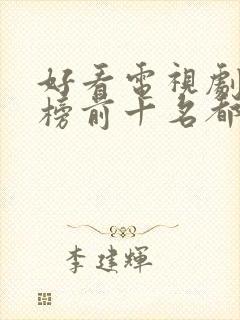 好看電視劇
榜前十名都
李建輝